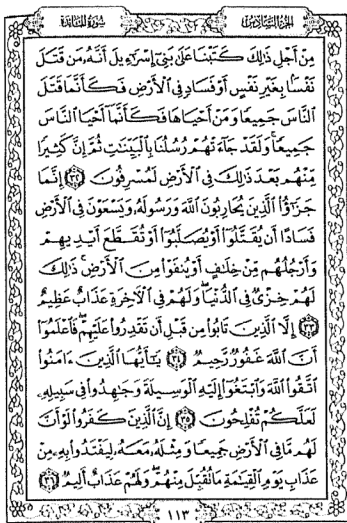 سُورَةُ المَائدة الجزء السادس
مِنْ أَجْلِ ذَٰلِكَ كَتَبْنَا عَلَىٰ بَنِىٓ إِسْرَٰٓءِيلَ أَنَّهُۥ مَن قَتَلَ
نَفْسًۢا بِغَيْرِ نَفْسٍ أَوْ فَسَادٍ فِى ٱلْأَرْضِ فَكَأَنَّمَا قَتَلَ
ٱلنَّاسَ جَمِيعًا وَمَنْ أَحْيَاهَا فَكَأَنَّمَآ أَحْيَا ٱلنَّاسَ
جَمِيعًا ۚ وَلَقَدْ جَآءَتْهُمْ رُسُلُنَا بِٱلْبَيِّنَٰتِ ثُمَّ إِنَّ كَثِيرًا
مِّنْهُم بَعْدَ ذَٰلِكَ فِى ٱلْأَرْضِ لَمُسْرِفُونَ ٣٢ إِنَّمَا
جَزَٰٓؤُا۟ ٱلَّذِينَ يُحَارِبُونَ ٱللَّهَ وَرَسُولَهُۥ وَيَسْعَوْنَ فِى ٱلْأَرْضِ
فَسَادًا أَن يُقَتَّلُوٓا۟ أَوْ يُصَلَّبُوٓا۟ أَوْ تُقَطَّعَ أَيْدِيهِمْ
وَأَرْجُلُهُم مِّنْ خِلَٰفٍ أَوْ يُنفَوْا۟ مِنَ ٱلْأَرْضِ ۚ ذَٰلِكَ
لَهُمْ خِزْىٌ فِى ٱلدُّنْيَا ۖ وَلَهُمْ فِى ٱلْءَاخِرَةِ عَذَابٌ عَظِيمٌ
٣٣ إِلَّا ٱلَّذِينَ تَابُوا۟ مِن قَبْلِ أَن تَقْدِرُوا۟ عَلَيْهِمْ ۖ فَٱعْلَمُوٓا۟
أَنَّ ٱللَّهَ غَفُورٌ رَّحِيمٌ ٣٤ يَٰٓأَيُّهَا ٱلَّذِينَ ءَامَنُوا۟
ٱتَّقُوا۟ ٱللَّهَ وَٱبْتَغُوٓا۟ إِلَيْهِ ٱلْوَسِيلَةَ وَجَٰهِدُوا۟ فِى سَبِيلِهِۦ
لَعَلَّكُمْ تُفْلِحُونَ ٣٥ إِنَّ ٱلَّذِينَ كَفَرُوا۟ لَوْ أَنَّ
لَهُم مَّا فِى ٱلْأَرْضِ جَمِيعًا وَمِثْلَهُۥ مَعَهُۥ لِيَفْتَدُوا۟ بِهِۦ مِنْ
عَذَابِ يَوْمِ ٱلْقِيَٰمَةِ مَا تُقُبِّلَ مِنْهُمْ ۖ وَلَهُمْ عَذَابٌ أَلِيمٌ ٣٦
١١٣